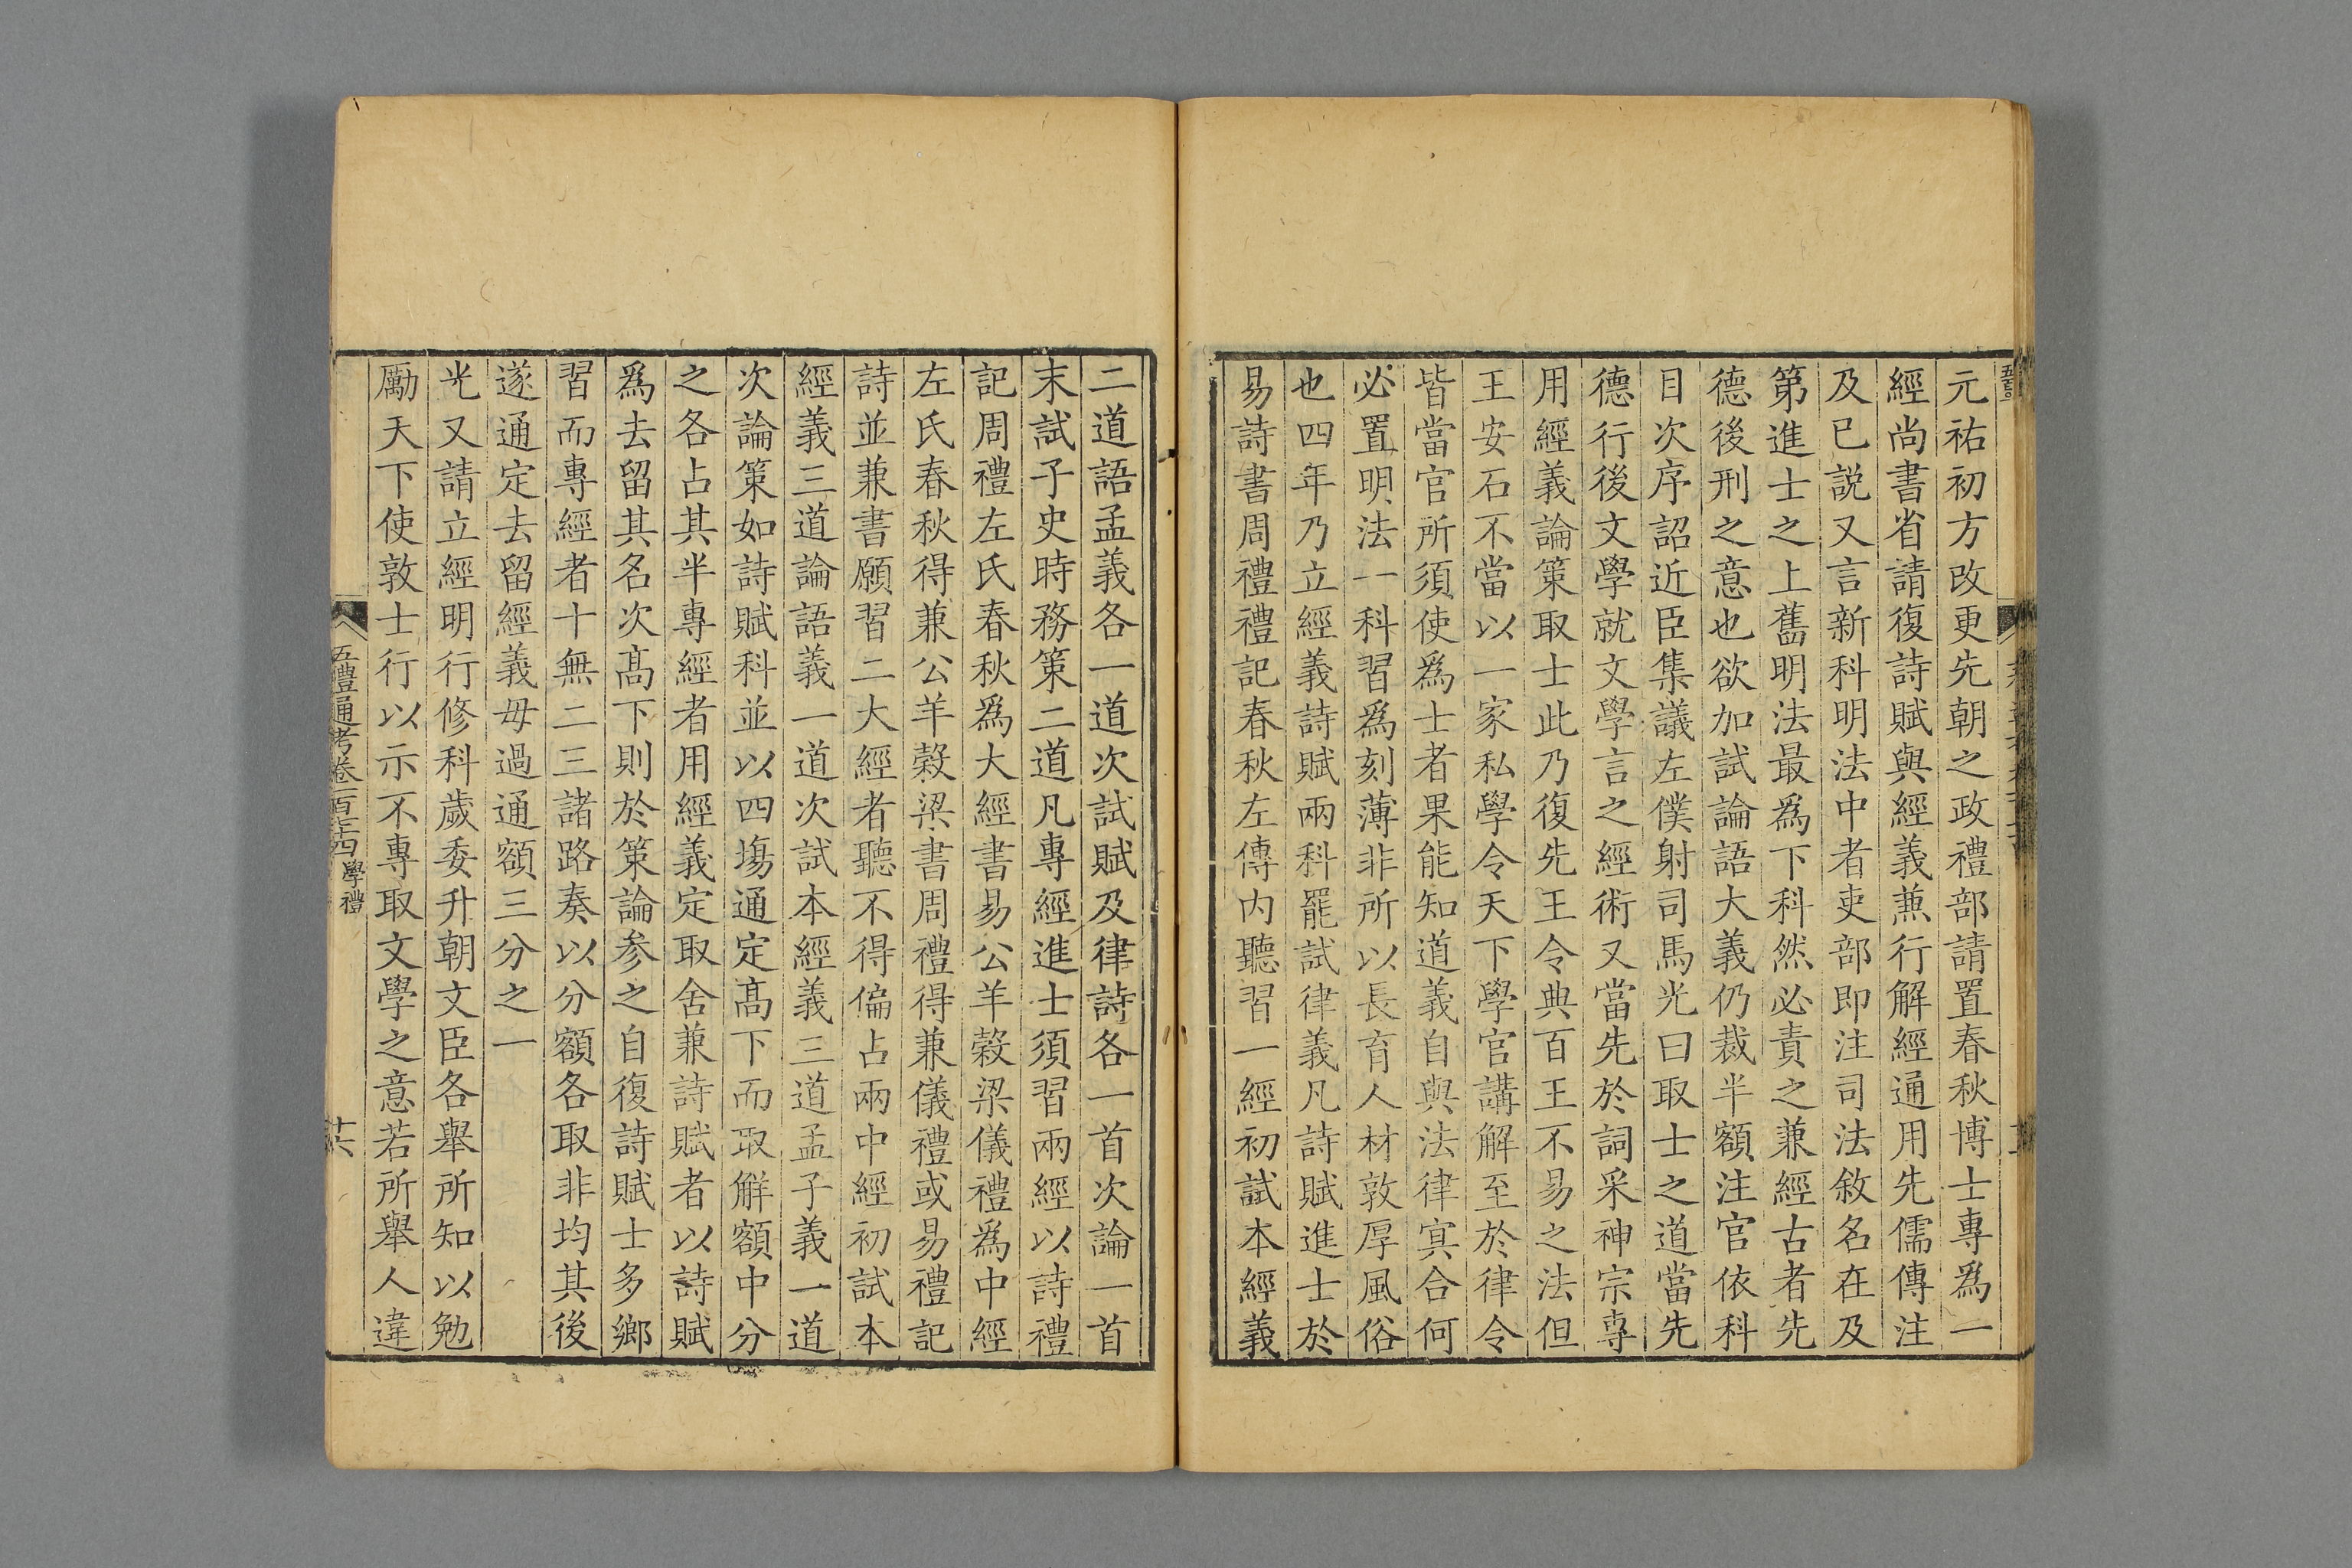 元祐初方改更先朝之政禮部請置春秋博士專爲一
經尚書省請復詩賦與經義兼行解經通用先儒傳注
及已説又言新科明法中者吏部即注司法敘名在及
第進士之上舊明法最爲下科然必責之兼經古者先
德後刑之意也欲加試論語大義仍裁半額注官依科
目次序詔近臣集議左僕射司馬光曰取士之道當先
德行後文學就文學言之經術又當先於詞采神宗專
用經義論策取士此乃復先王令典百王不易之法但
王安石不當以一家私學令天下學官講解至於律令
皆當官所須使爲士者果能知道義自與法律冥合何
必置明法一科習爲刻薄非所以長育人材敦厚風俗
也四年乃立經義詩賦兩科罷試律義凡詩賦進士於
易詩書周禮禮記春秋左傳内聽習一經初試本經義
二道語孟義各一道次試賦及律詩各一首次論一首
末試子史時務策二道凡專經進士須習兩經以詩禮
記周禮左氏春秋爲大經書易公羊穀梁儀禮爲中經
左氏春秋得兼公羊穀梁書周禮得兼儀禮或易禮記
詩並兼書願習二大經者聽不得偏占兩中經初試本
經義三道論語義一道次試本經義三道孟子義一道
次論策如詩賦科並以四塲通定髙下而取解額中分
之各占其半專經者用經義定取舍兼詩賦者以詩賦
爲去留其名次髙下則於策論参之自復詩賦士多鄉
習而專經者十無二三諸路奏以分額各取非均其後
遂通定去留經義毋過通額三分之一
光又請立經明行修科歲委升朝文臣各舉所知以勉
勵天下使敦士行以示不專取文學之意若所舉人違
五禮通考卷一百七十四 學禮
十六